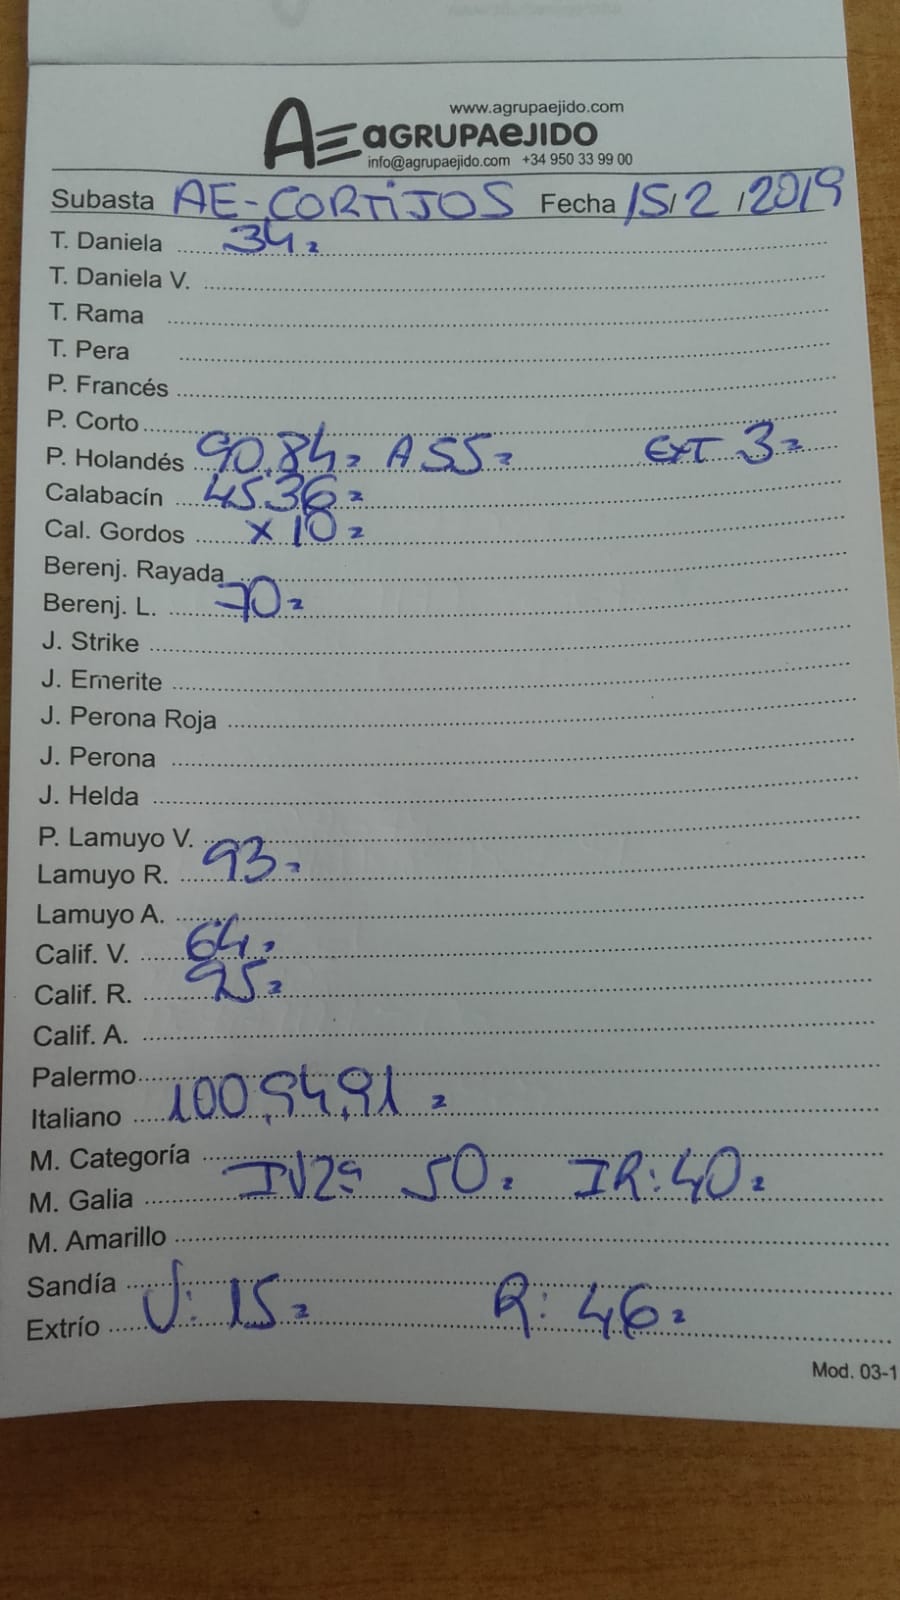 www.agrupaejido.com
AE aGRUPAeJIDO
info@agrupaejido.com +34 950 33 99 00
Subasta AE-CORTIJOS Fecha 15/2/2019
T. Daniela 34=
T. Daniela V.
T. Rama
T. Pera
P. Francés
P. Corto
P. Holandés 90,84= A 55= EXT 3=
Calabacín 45,36=
Cal. Gordos x 10=
Berenj. Rayada
Berenj. L. 70=
J. Strike
J. Emerite
J. Perona Roja
J. Perona
J. Helda
P. Lamuyo V.
Lamuyo R. 93=
Lamuyo A.
Calif. V. 64=
Calif. R. 95=
Calif. A.
Palermo
Italiano 100,94,91=
M. Categoría
M. Galia 50= IR: 40=
M. Amarillo
Sandía
Extrío V: 15= R: 46=
Mod. 03-1